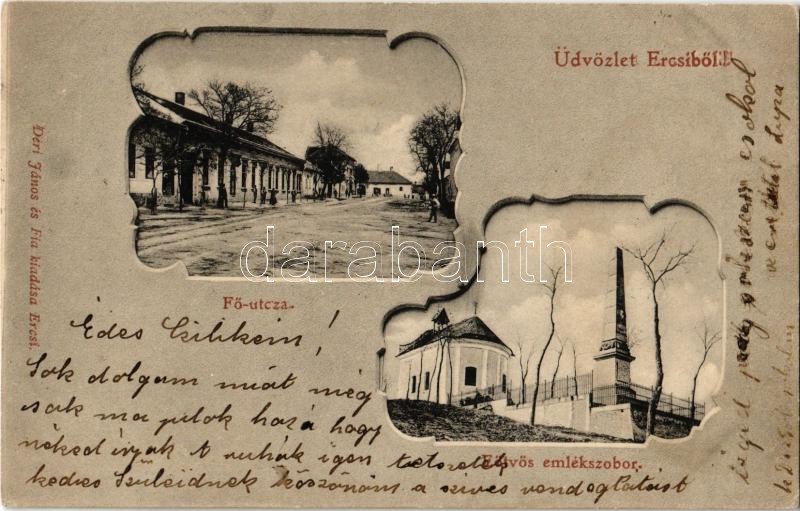 Üdvözlet Ercsiből!!
Deri János és Fia kiadása Ercsi.
Fő-utcza.
Eötvös emlékszobor.
darabanth
Édes Czilikém!
Sok dolgam miát még
csak ma jutok hozá hogy
néked irjak A ruhák igen tetszettek
kedves Szüleidnek köszönöm a szives vendéglátást